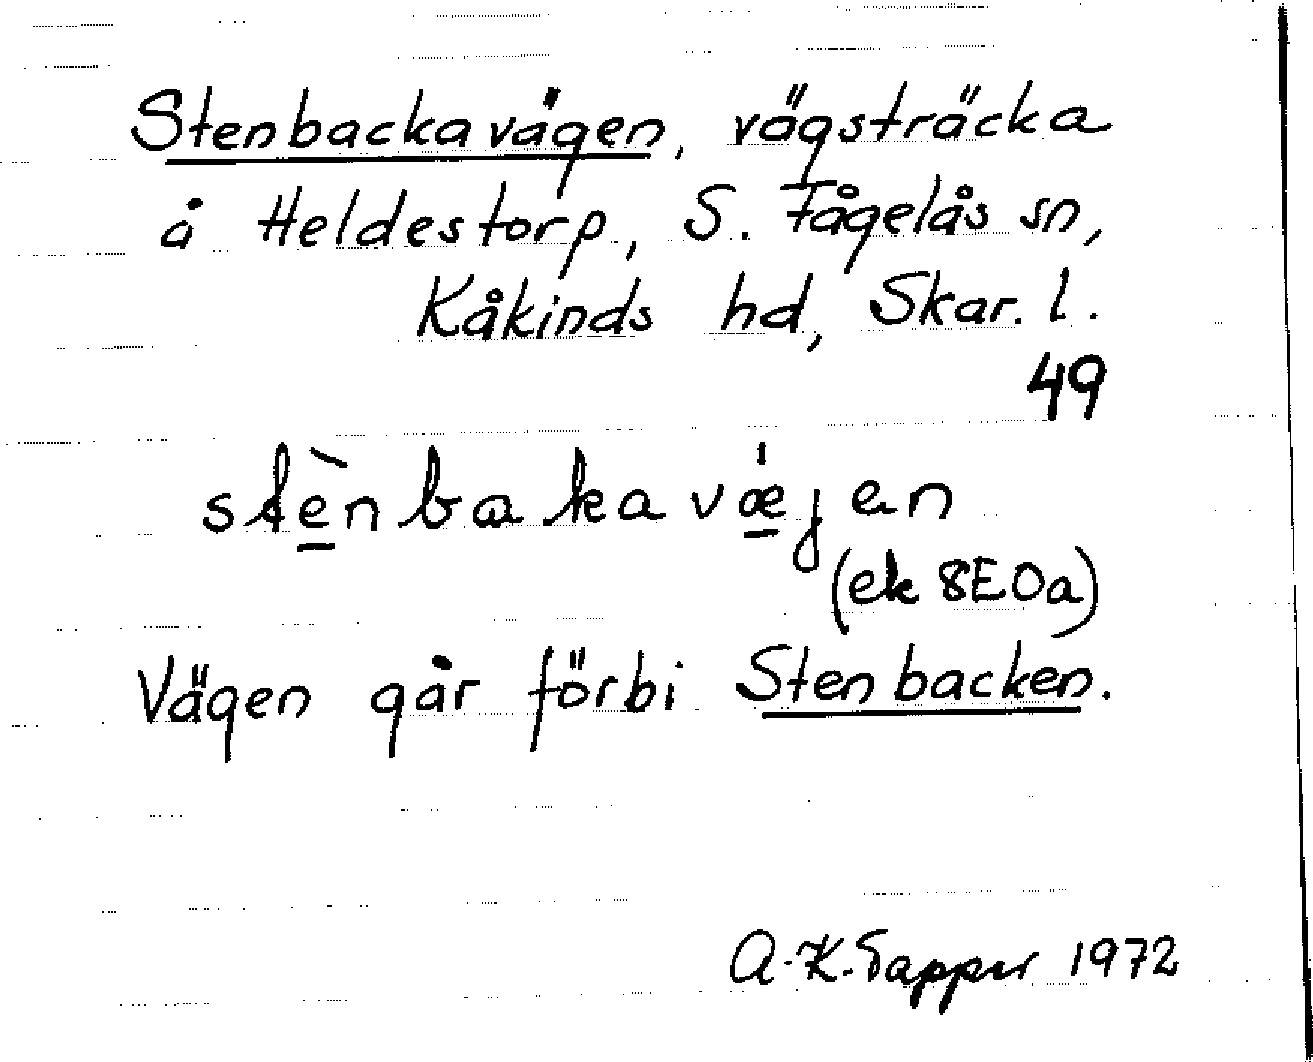 Stenbackavägen, vägsträcka
å Heldestorp, S. Fågelås sn,
Kåkinds hd, Skar. l.
49
stènbakavæ̀jen
(ek 8E0a)
Vägen går förbi Stenbacken.
A-K. Tapper 1972